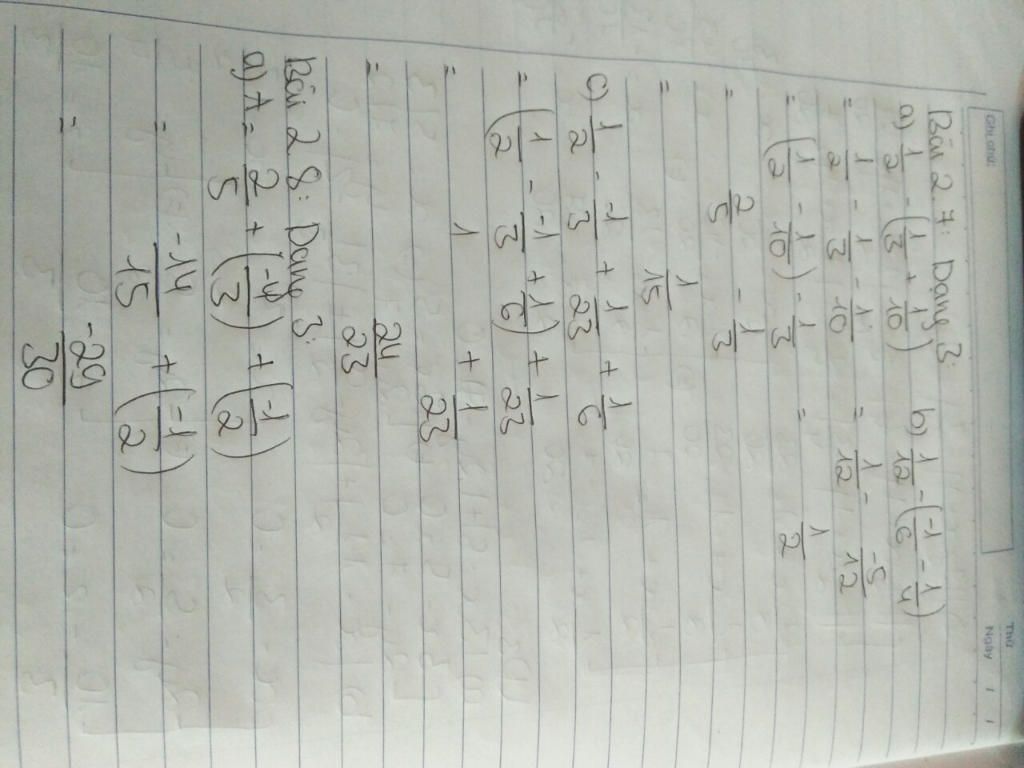 Chủ đề: Thứ
Ngày / /
Bài 2.7: Dạng 3:
a) 1/2 - (1/3 + 1/10) b) 1/12 - (-1/6 - 1/4)
= 1/2 - 1/3 - 1/10 = 1/12 - -5/12
= (1/2 - 1/10) - 1/3 = 1/2
= 2/5 - 1/3
= 1/15
c) 1/2 - -1/3 + 1/23 + 1/6
= (1/2 - -1/3 + 1/6) + 1/23
= 1 + 1/23
= 24/23
Bài 2.8: Dạng 3:
a) A = 2/5 + (-4/3) + (-1/2)
= -14/15 + (-1/2)
= -29/30